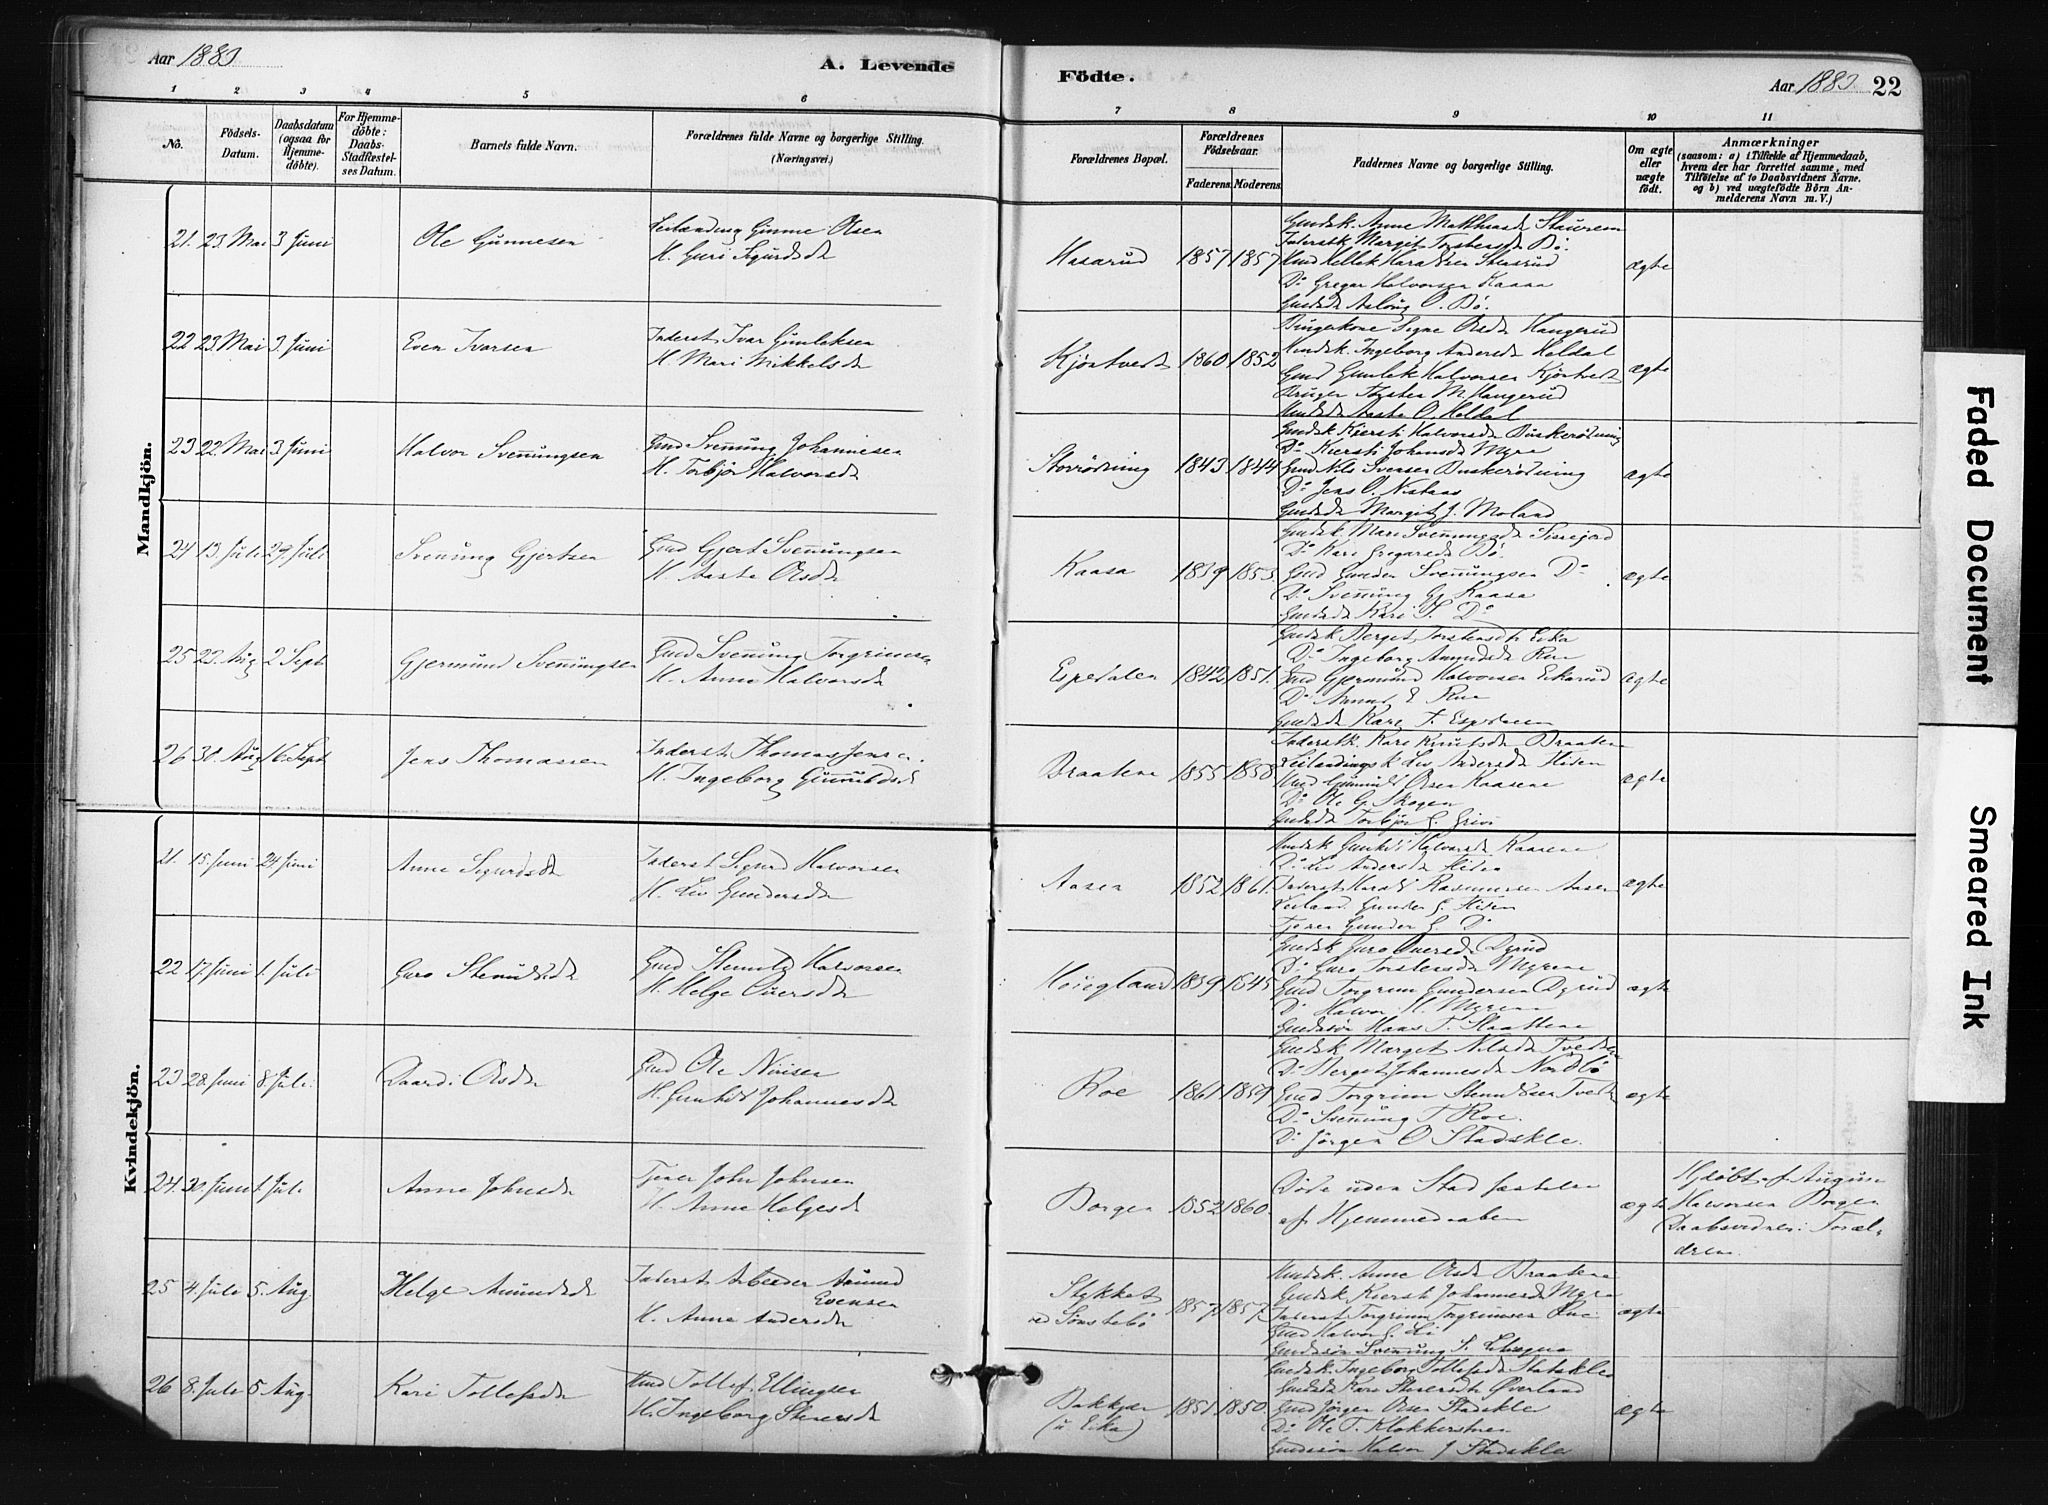 Aar 1883
A. Levende
Födte.
Aar 1883.
22
1 2 3 4 5 6 7 8 9 10 11
No.
Födsels-
Datum.
Daabsdatum
(ogsaa for
Hjemme-
döbte).
For Hjemme-
döbte:
Daabs-
Stadfæstel-
ses Datum.
Barnets fulde Navn.
Forældrenes fulde Navne og borgerlige Stilling.
(Næringsvei.)
Forældrenes Bopæl.
Forældrenes
Födselsaar.
Faderens. Moderens.
Faddernes Navne og borgerlige Stilling.
Om ægte
eller
uægte
födt.
Anmærkninger
(saasom: a) i Tilfælde af Hjemmedaab,
hvem der har forrettet samme, med
Tilföielse af to Daabsvidners Navne.
og b) ved uægtefödte Börn An-
melderens Navn m. V.)
Mandkjön.
21. 23. Mai 3 Juni
Ole Gunnesen
Gunne Olsen
H. Guri Sigurdsdt
Haserud 1857 1857
Gmdsk. Anne
Inderstk Margit Torstensdt Bö.
D: Gregar Halvorsen Kaasa
Gmdsdt Asloug O. Bö.
ægte
22 23. Mai 3. Juni
Even Ivarsen
Inderst Ivar Gunleksen
H. Mari Mikkelsdt
Kjöntvedt 1860 1852
Brugerkone Signe Olsdt Haugerud
Ingeborg Andersdt Heldal
Gmd Gunlek Halvorsen Kjöntvedt
Bruger Torsten M. Haugerud
Aaste O. Heldal
ægte
23 22. Mai 3 Juni
Halvor Svenungsen
Gmd Svenung Johannesen
H. Torbjör Halvorsdt
Storrödning 1843 1844
Gmdsk Kiersti Halvorsdt Buskerödning
D: Kiersti Johansdt Myre
Gmd Nils Svensen Buskerödning
D: Jens O. Nistaas
Gmdsdt Margit J. Moland
ægte
24 13. Juli 29. Juli
Svenung Gjertsen
Gmd Gjert Svenungsen
H. Aaste Olsdt
Kaasa 1839 1853.
Gmdsk. Mari Svenungsdt
D: Kari Gregarsdt Bö.
Gmd Gunder Svenungsen D:
D: Svenung Gj Kaasa
Gmdsdt Kari S. D:
ægte
25 23. Aug 2 Sept
Gjermund Svenungsen
Gmd Svenung Torgrimsen
H. Anne Halvorsdt
Espedalen 1842 1851.
Gmdsk Berget Torstensdt Eika
D: Ingeborg Amundsdt Rue
Gmd Gjermund Halvorsen Eikarud
D: Amund E Rue
Gmdsdt Kari T. Espedalen
ægte
26 30. Aug 16. Sept
Jens Thomassen
Inderst Thomas Jensen
H. Ingeborg Gunuldsdt
Braatene 1855 1858.
Inderstk. Kari Knutsdt Braatene
Leilændingsk Liv Andersdt Hisen
Gmd Gunnuld Olsen Kaasene
D: Ole G. Skogen
Gmdsdt Torbjör G. Grivi
ægte
Kvindekjön.
21. 15. Juni 24 Juni
Anne Sigurdsdt
Inderst Sigurd Halvorsen
H. Liv Gundersdt
Aasen 1852 1861.
Gmdsk Gunhild Halvorsdt Kaasene
D: Liv Andersdt Hisen
Inderst Harald Rasmussen Aasen
Leilænd. Gunder G. Hisen
Tjener Gunder G D:
ægte
22 17. Juni 1. Juli
Guro Stenulsdt
Gmd Stenuld Halvorsen
H. Helge Oversdt
Höiegland 1839 1845
Gmdsk Guro Oversdt Dyrud
D: Guro Torstensdt Myrene
Gmd Torgrim Gundersen Dyrud
D: Halvor H. Myrene
Gmdssön Hans T. Haatene
ægte
23 28. Juni 8. Juli.
Daardi Olsdt
Gmd Ole Nirisen
H. Gunhild Johannesdt
Roe 1861 1859
Gmdsk Margit Nilsdt Tvedten
D: Berget Johannesdt Nordbö
Gmd Torgrim Stenulsen Tvedten
D: Svenung T Roe.
D: Jörgen O Stadskle.
ægte
24. 30. Juni 1. Juli
Anne Johnsdt
Tjener John Johnsen
H. Anne Helgesdt
Borgen 1852 1860.
Döde uden Stadfæstelse
af Hjemmedaaben
ægte
Hjdöbt af Augun
Halvorsen Borgen
Daabsvidner: Foræl-
drene.
25 4. Juli 5. Aug.
Helge Amundsdt
Inderst Arbeider Amund
Evensen
H. Anne Andersdt
Stykket
ved Sönstebö 1857. 1857.
Gmdsk. Anne Olsdt Braatene
Gmdsk Kiersti Johannesdt Myra
Inderst Torgrim Torgrimsen Rue
Gmd Halvor G. Li
Gmdssön Svenung S.
ægte
26 8. Juli 5 Aug.
Kari Tollefsdt
Gmd Tollef Ellingsen
H. Ingeborg Steversdt
Bakkjen
(u Eika) 1851. 1850.
Gmdsk. Ingeborg Tollefsdt Stadskle
Gmdsdt Kari Steversdt Överland
Gmd Jörgen Olsen Stadskle
D: Ole T. Klokkerstuen
Gmdssön Halvor J Stadskle
ægte
Faded Document
Smeared Ink